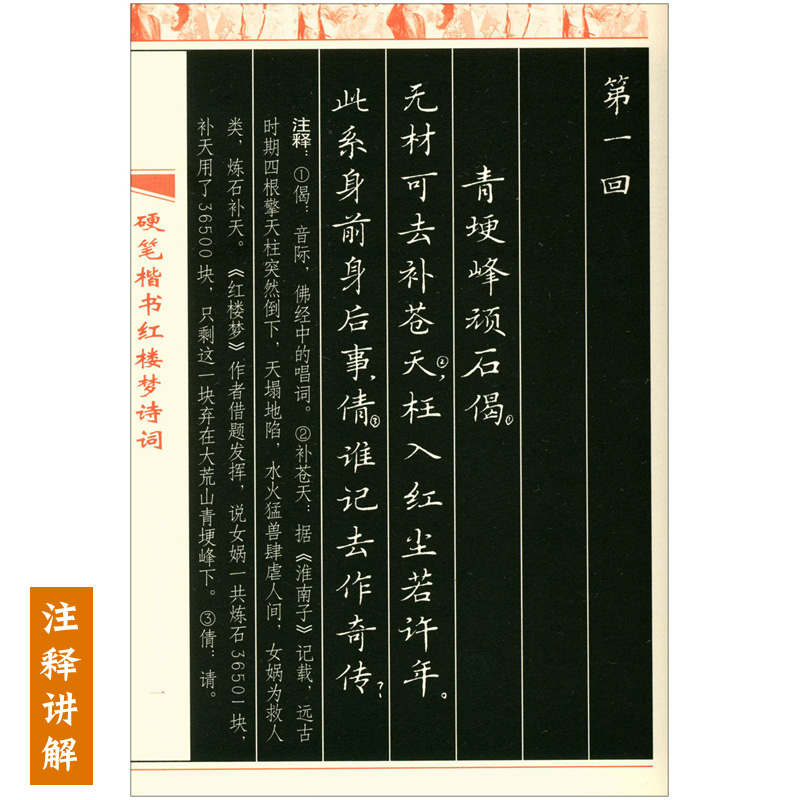 第一回
青埂峰顽石偈①。
无材可去补苍天②，枉入红尘若许年。
此系身前身后事，倩③谁记去作奇传？
注释：①偈：音际，佛经中的唱词。②补苍天：据《淮南子》记载，远古
时期四根擎天柱突然倒下，天塌地陷，水火猛兽肆虐人间，女娲为救人
类，炼石补天。《红楼梦》作者借题发挥，说女娲一共炼石36501块，
补天用了36500块，只剩这一块弃在大荒山青埂峰下。③倩：请。
硬笔楷书红楼梦诗词
一
注释讲解